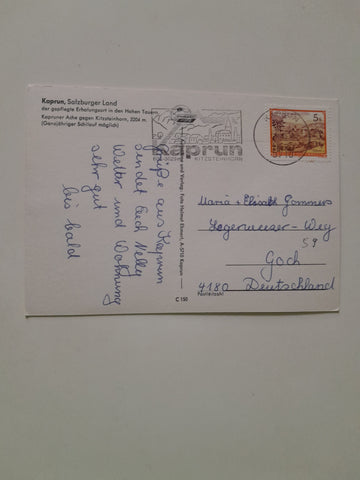 Kaprun, Salzburger Land
der gepflegte Erholungsort in den Hohen Tauern
Kapruner Ache gegen Kitzsteinhorn, 3204 m
(Ganzjähriger Schilauf möglich)
Grüße aus Kaprun
sendet Euch Nelly
Wetter und Wohnung
sehr gut
bis bald
und Verlag: Foto Helmut
A-5710 Kaprun
C 150
kaprun
KITZSTEINHORN
5710
5 S
Maria + Elisab. Gommers
Lagerweuser-Weg
59
Goch
4180 Deutschland